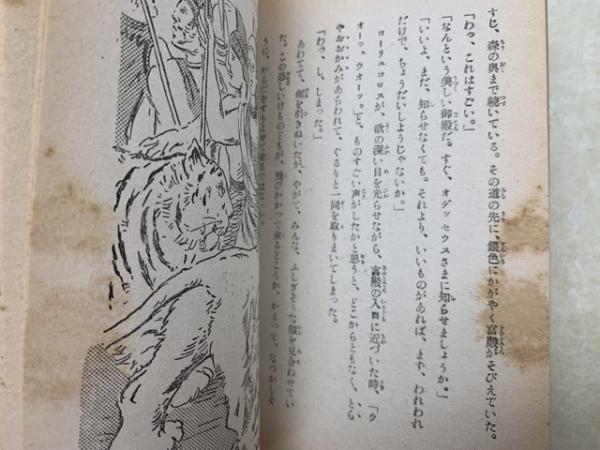 すじ、森の奥まで続いている。その道の先に、銀色にかがやく宮殿がそびえていた。
「わっ、これはすごい。」
「なんという美しい御殿だ。すぐ、オデッセウスさまに知らせましょうか。」
「いいよ、まだ、知らせなくても。それより、いいものがあれば、まず、われわれ
だけで、ちょうだいしようじゃないか。」
ローリュコロスが、欲の深い目を光らせながら、宮殿の入口に近づいた時、「ウ
オーッ、ウオーッ。」と、ものすごい声がしたかと思うと、どこからともなく、とら
やおおかみがあらわれて、ぐるりと一同を取りまいてしまった。
「わっ、し、しまった。」
あわてて、剣を引きぬいたが、やがて、みんな、ふしぎそうな顔を見合わせてい
た。この恐しいけものどもが、飛びかかって来るどころか、かえって、なつかしそ
うに、からだをすりよせて